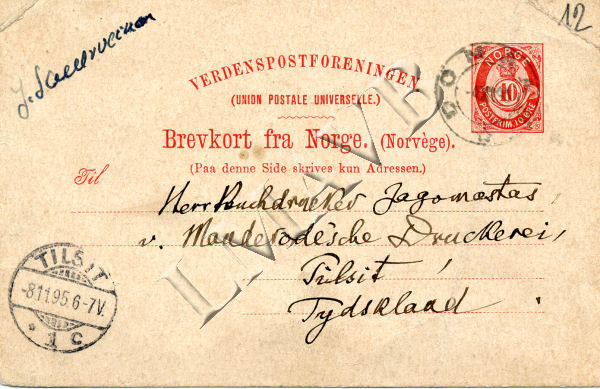 12
VERDENSPOSTFORENINGEN
(UNION POSTALE UNIVERSELLE.)
Brevkort fra Norge. (Norvège).
(Paa denne Side skrives kun Adressen.)
NORGE
10
POSTFRIM. TO ØRE
Til
Herr Buchdrucker Jagomastas,
v. Mauderode'sche Druckerei,
Tilsit
Tydskland
TILSIT
-8.11.95.6-7V.
* 1 c
LMAVB